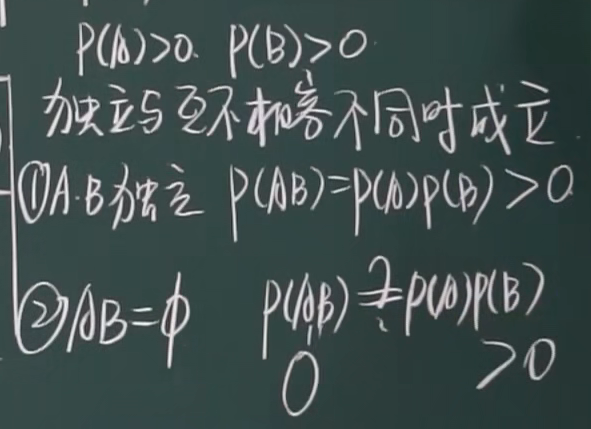 P(A)>0. P(B)>0.
独立与互不相容不同时成立.
①A.B独立 P(AB)=P(A)P(B)>0
②AB=φ P(AB)≠P(A)P(B)
0 >0